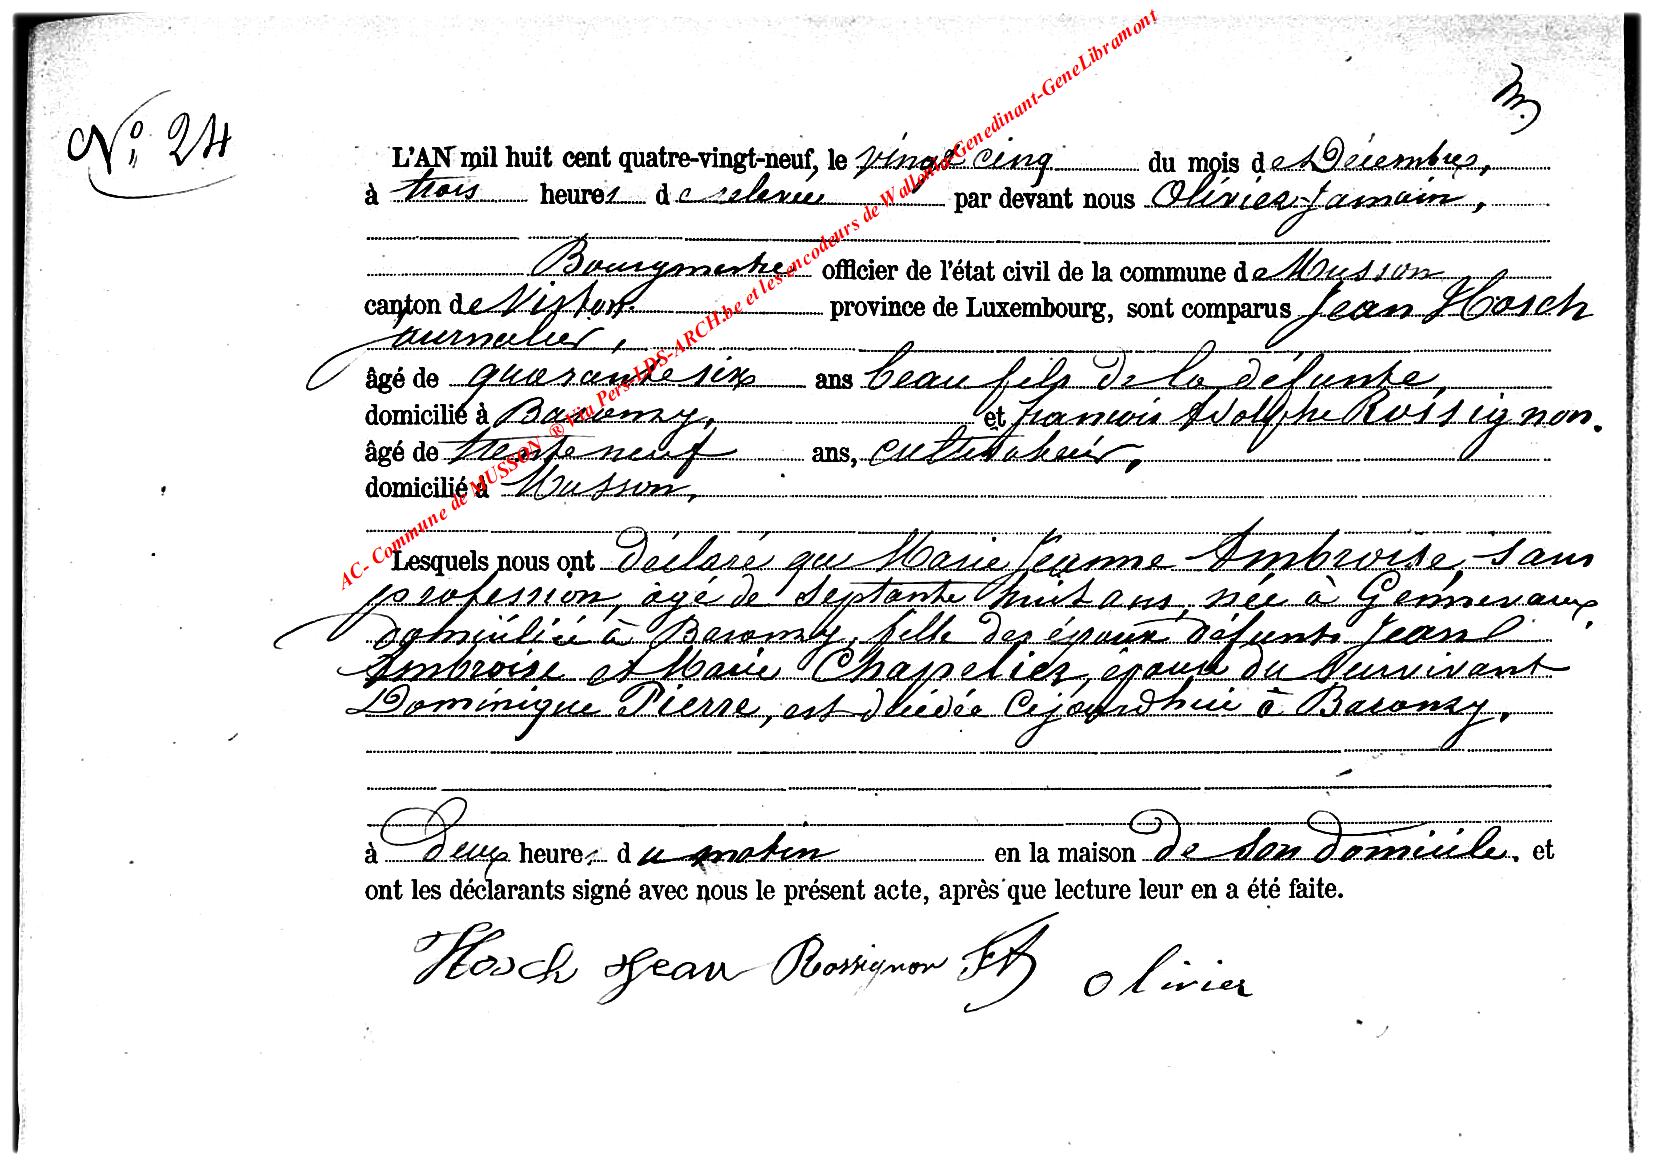 N° 24
L'AN mil huit cent quatre-vingt-neuf, le vingt cinq du mois de Décembre,
à trois heures de relevée par devant nous Olivier Jamain,
Bourgmestre officier de l'état civil de la commune de Musson
canton de Virton. province de Luxembourg, sont comparus Jean Hosch
journalier,
âgé de quarante six ans beau fils de la défunte,
domicilié à Baranzy, et francois Adolphe Rossignon.
âgé de trente neuf ans, cultivateur,
domicilié à Musson,
Lesquels nous ont déclaré que Marie Jeanne Ambroise, sans
profession, âgé de septante huit ans, née à Gennevaux,
domiciliée à Baranzy, fille des époux défunts Jean
Ambroise et Marie Chapelier, épouse du survivant
Dominique Pierre, est décédée cejourdhui à Baranzy,
à deux heures du matin en la maison de son domicile, et
ont les déclarants signé avec nous le présent acte, après que lecture leur en a été faite.
Hosch Jean Rossignon FA Olivier
AC- Commune de MUSSON ® Via Pers-LDS-ARCH.be et les encodeurs de Wallonia-Genedinant-GeneLibramont